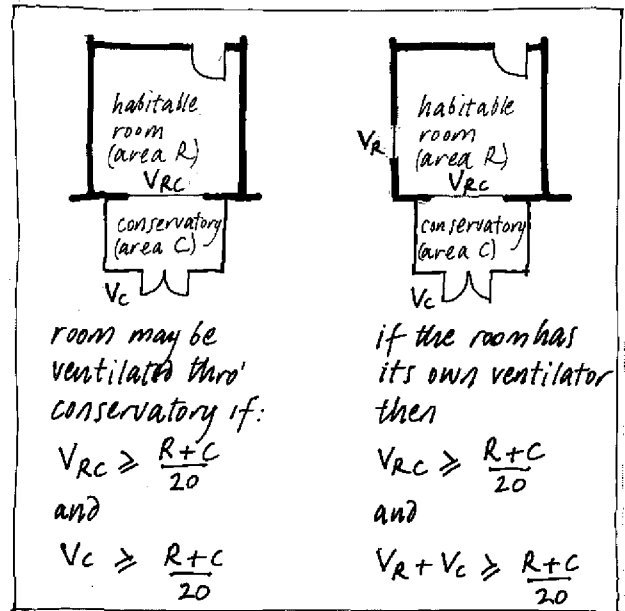 habitable
room
(area R)
V_RC
conservatory
(area C)
V_C
room may be
ventilated thro'
conservatory if:
V_RC ⩾ R+C/20
and
V_C ⩾ R+C/20
habitable
room
(area R)
V_R
V_RC
conservatory
(area C)
V_C
if the room has
its own ventilator
then
V_RC ⩾ R+C/20
and
V_R + V_C ⩾ R+C/20